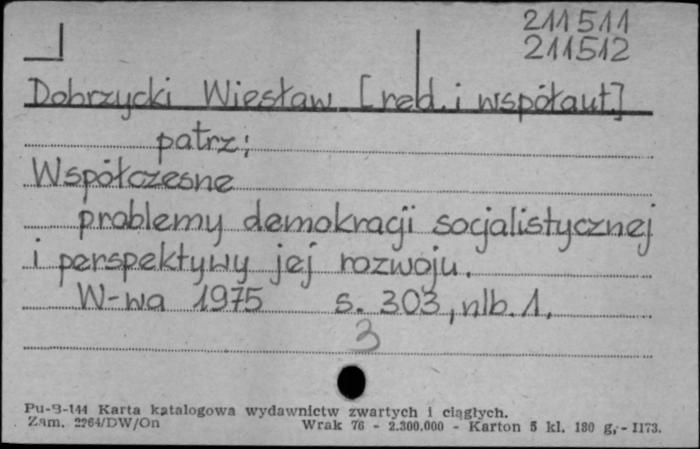 211511
211512
Dobrzycki Wiesław [red. i współaut.]
patrz:
Współczesne
problemy demokracji socjalistycznej
i perspektywy jej rozwoju.
W-wa 1975 s. 303, nlb. 1.
3
Pu-B-144 Karta katalogowa wydawnictw zwartych i ciągłych.
Zam. 2264/DW/On Wrak 76 - 2.300.000 - Karton 5 kl. 180 g,- 1173.